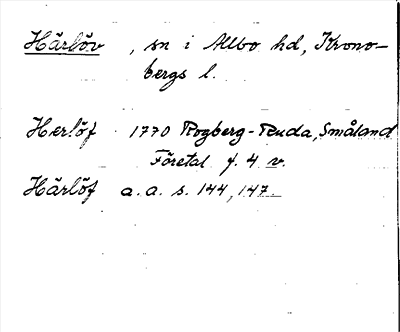 Härlöv, sn i Allbo hd, Krono-
bergs l.
Herlöf 1770 Rogberg-Ruda, Småland
Företal f. 4 v.
Härlöf a.a. s. 144, 147.